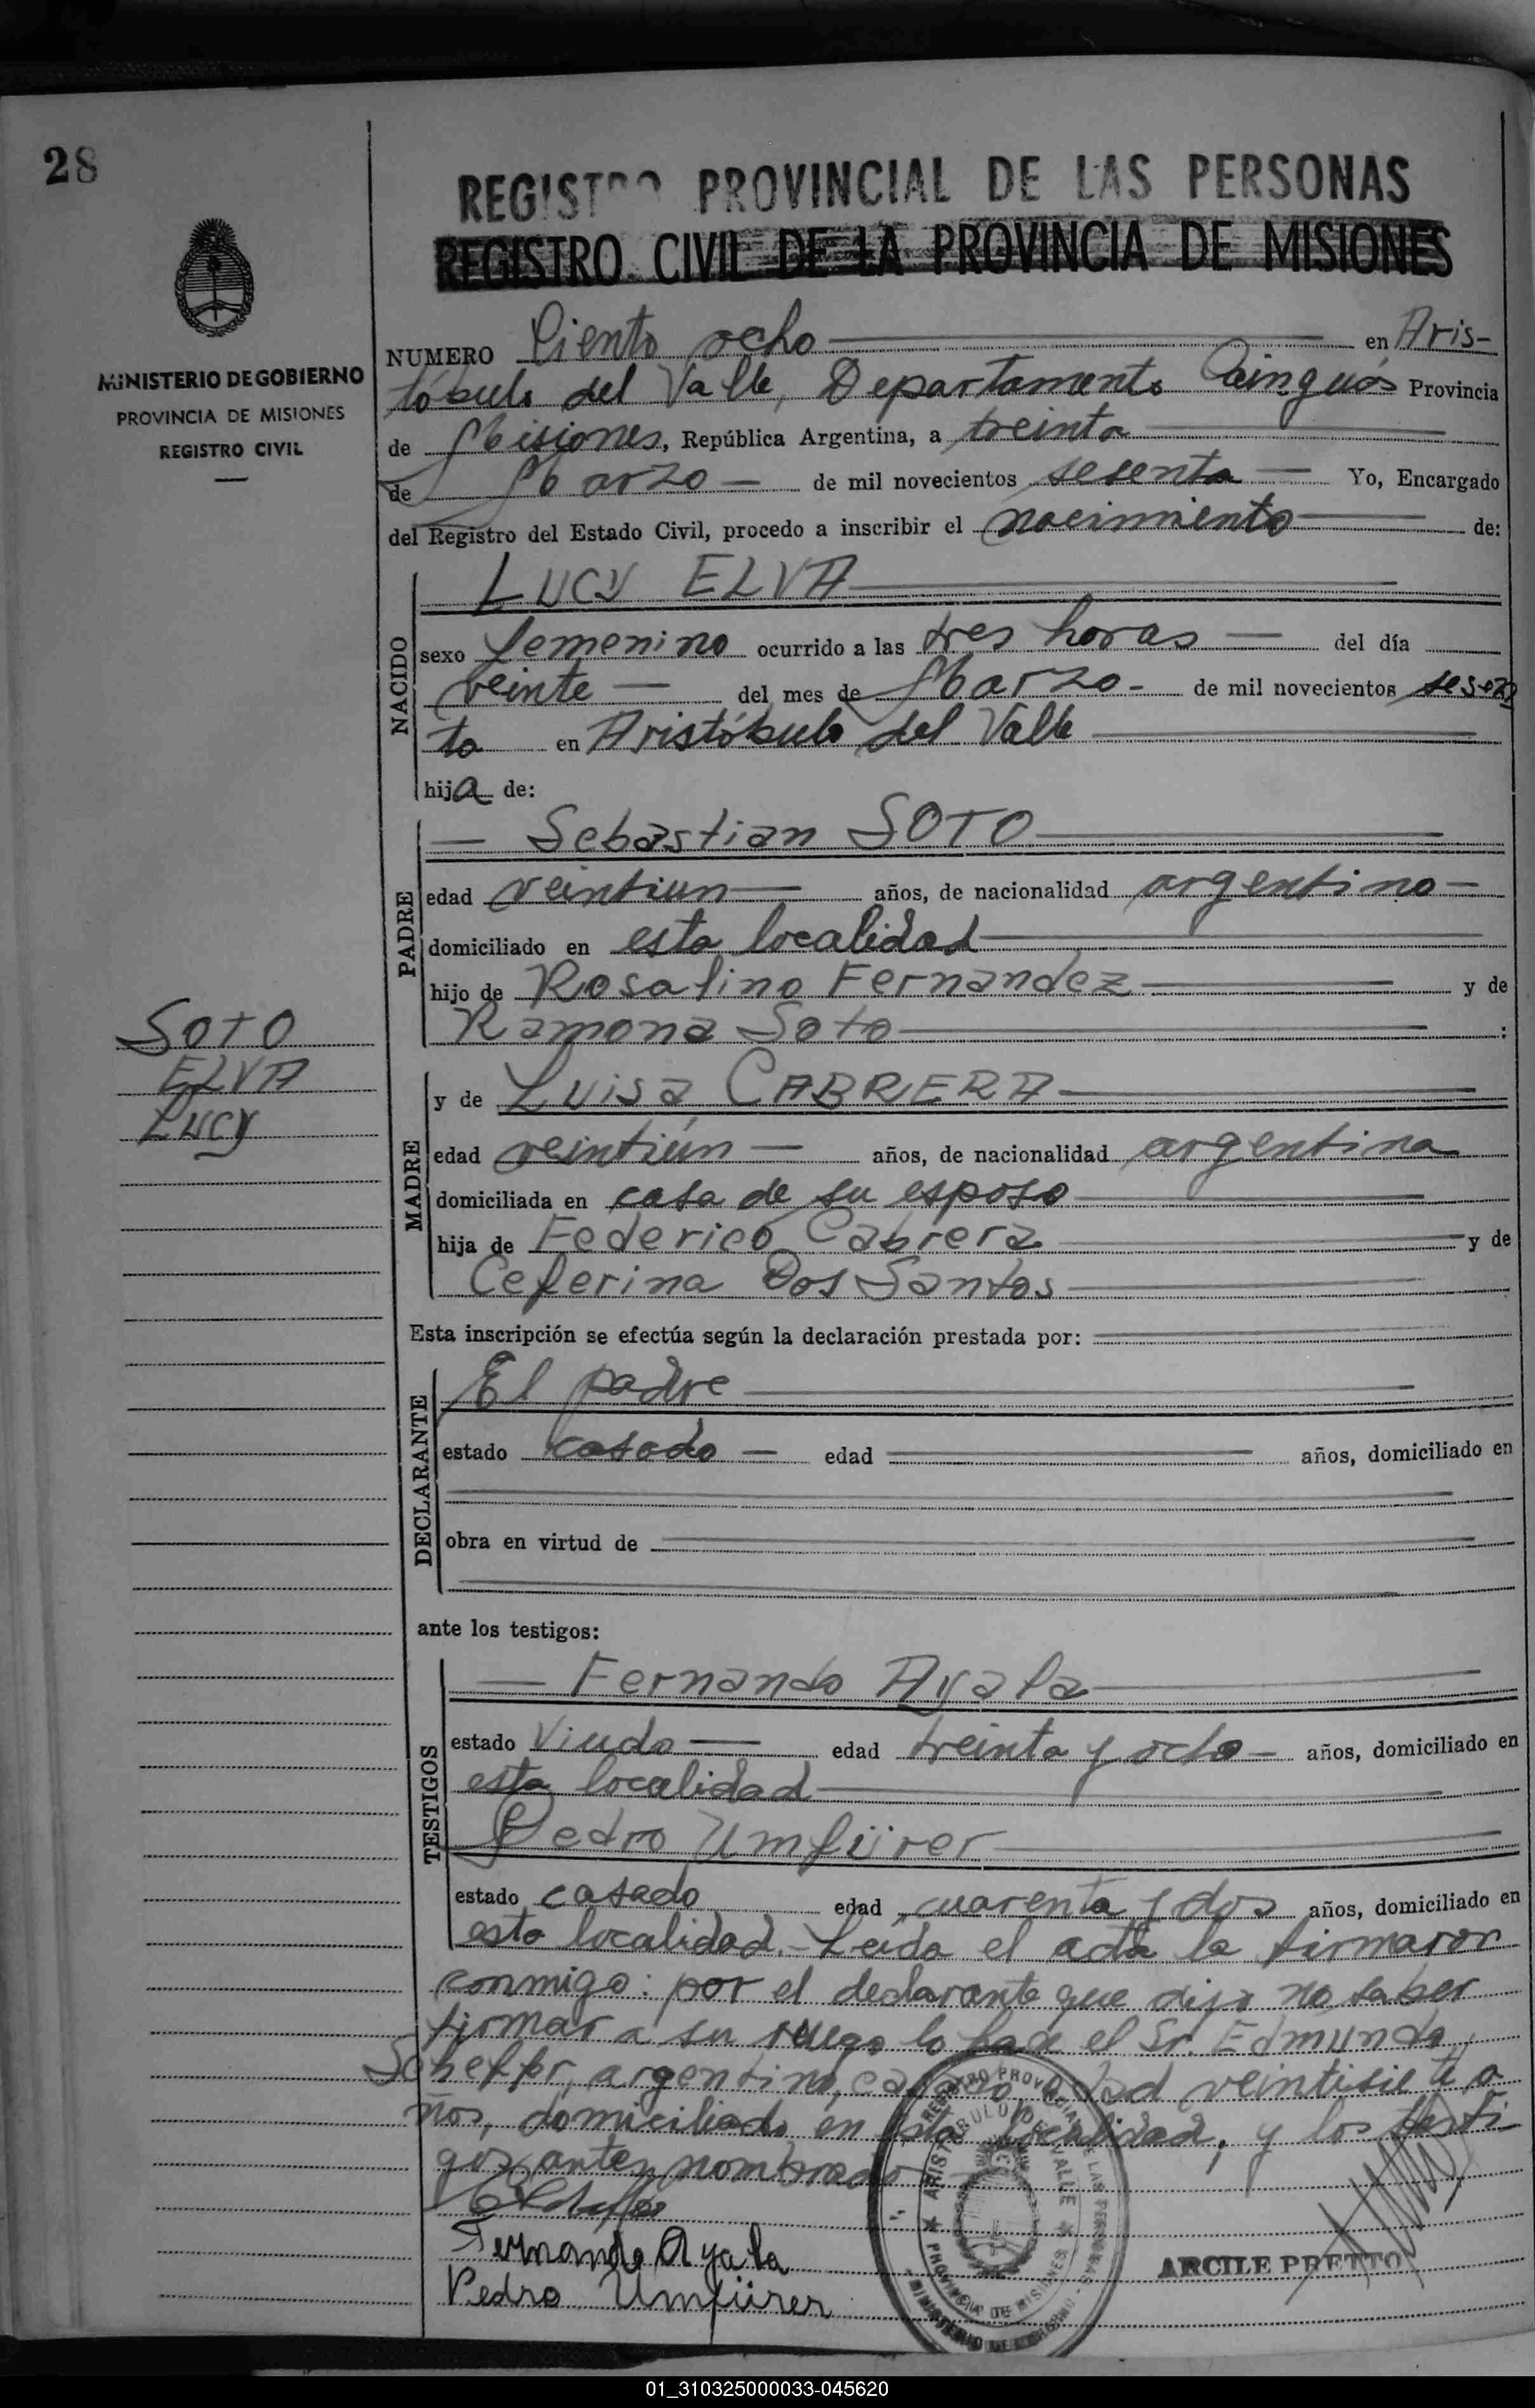 28
REGISTRO PROVINCIAL DE LAS PERSONAS
REGISTRO CIVIL DE LA PROVINCIA DE MISIONES
MINISTERIO DE GOBIERNO
PROVINCIA DE MISIONES
REGISTRO CIVIL
NUMERO Ciento ocho en Aris-
tóbulo del Valle, Departamento Cainguás Provincia
de Misiones, República Argentina, a treinta
de Marzo de mil novecientos sesenta Yo, Encargado
del Registro del Estado Civil, procedo a inscribir el nacimiento de:
NACIDO
LUCY ELVA
sexo femenino ocurrido a las tres horas del día
veinte del mes de Marzo de mil novecientos sesen
ta en Aristóbulo del Valle
hija de:
PADRE
Sebastian SOTO
edad veintiun años, de nacionalidad argentino
domiciliado en esta localidad
hijo de Rosalino Fernandez y de
Ramona Soto :
SOTO
ELVA
Lucy
MADRE
y de Luisa CABRERA
edad veintiún años, de nacionalidad argentina
domiciliada en casa de su esposo
hija de Federico Cabrera y de
Ceferina Dos Santos
Esta inscripción se efectúa según la declaración prestada por:
DECLARANTE
El padre
estado casado edad años, domiciliado en
obra en virtud de
ante los testigos:
TESTIGOS
Fernando Ayala
estado Viudo edad treinta y ocho años, domiciliado en
esta localidad
Pedro Umfürer
estado casado edad cuarenta y dos años, domiciliado en
esta localidad.- Leída el acta la firmaron
conmigo: por el declarante que dijo no saber
firmar a su ruego lo hace el Sr. Edmundo
Scheffer, argentino, casado, edad veintisiete a
ños, domiciliado en esta localidad, y los testi
gos antes nombrados
Fernando Ayala
Pedro Umfürer
ARCILE PRETTO
REGISTRO PROVINCIAL DE LAS PERSONAS
ARISTOBULO DEL VALLE
PROVINCIA DE MISIONES
MINISTERIO DE GOBIERNO
01_310325000033-045620